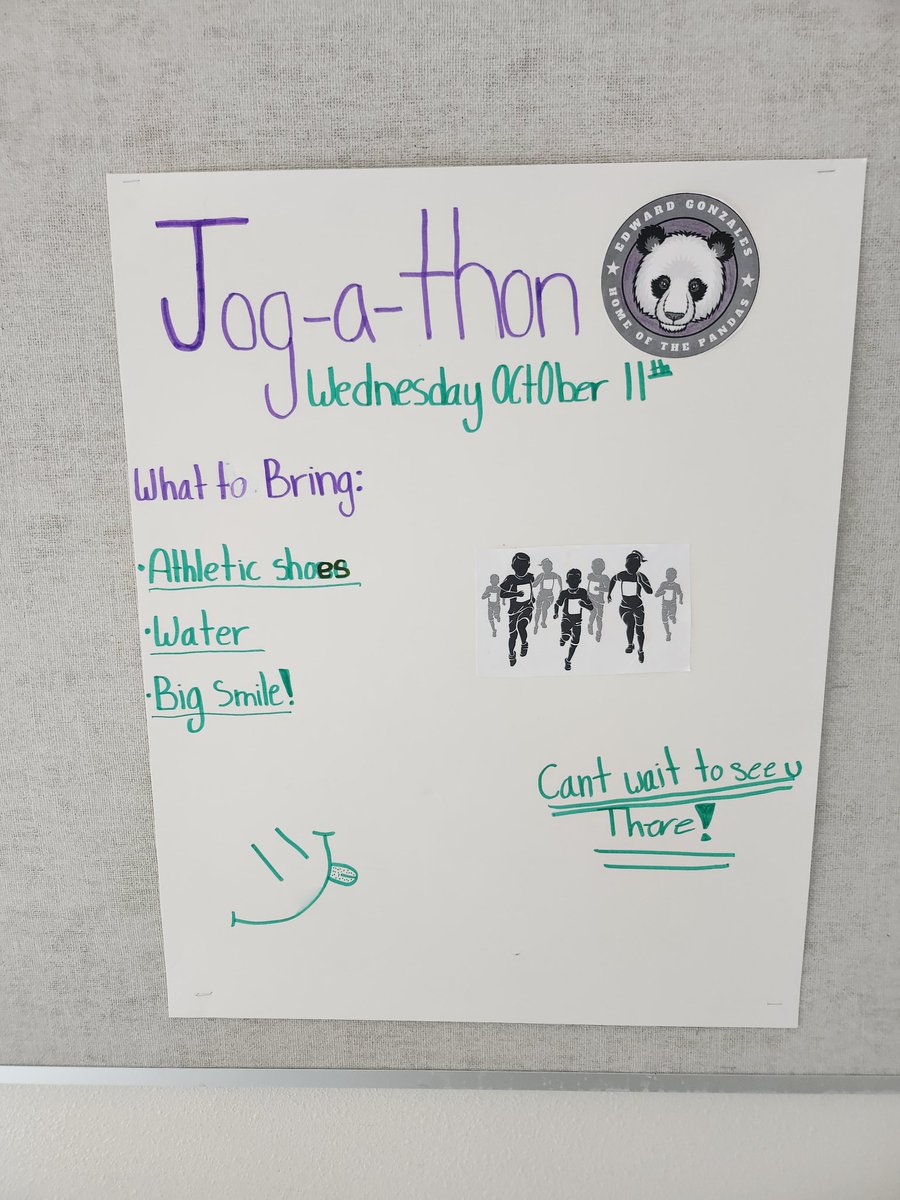 Jog-a-thon
EDWARD GONZALES
HOME OF THE PANDAS
Wednesday OctOber 11th
What to Bring:
·Athletic shoes
·Water
·Big Smile!
Cant wait to see u
There!